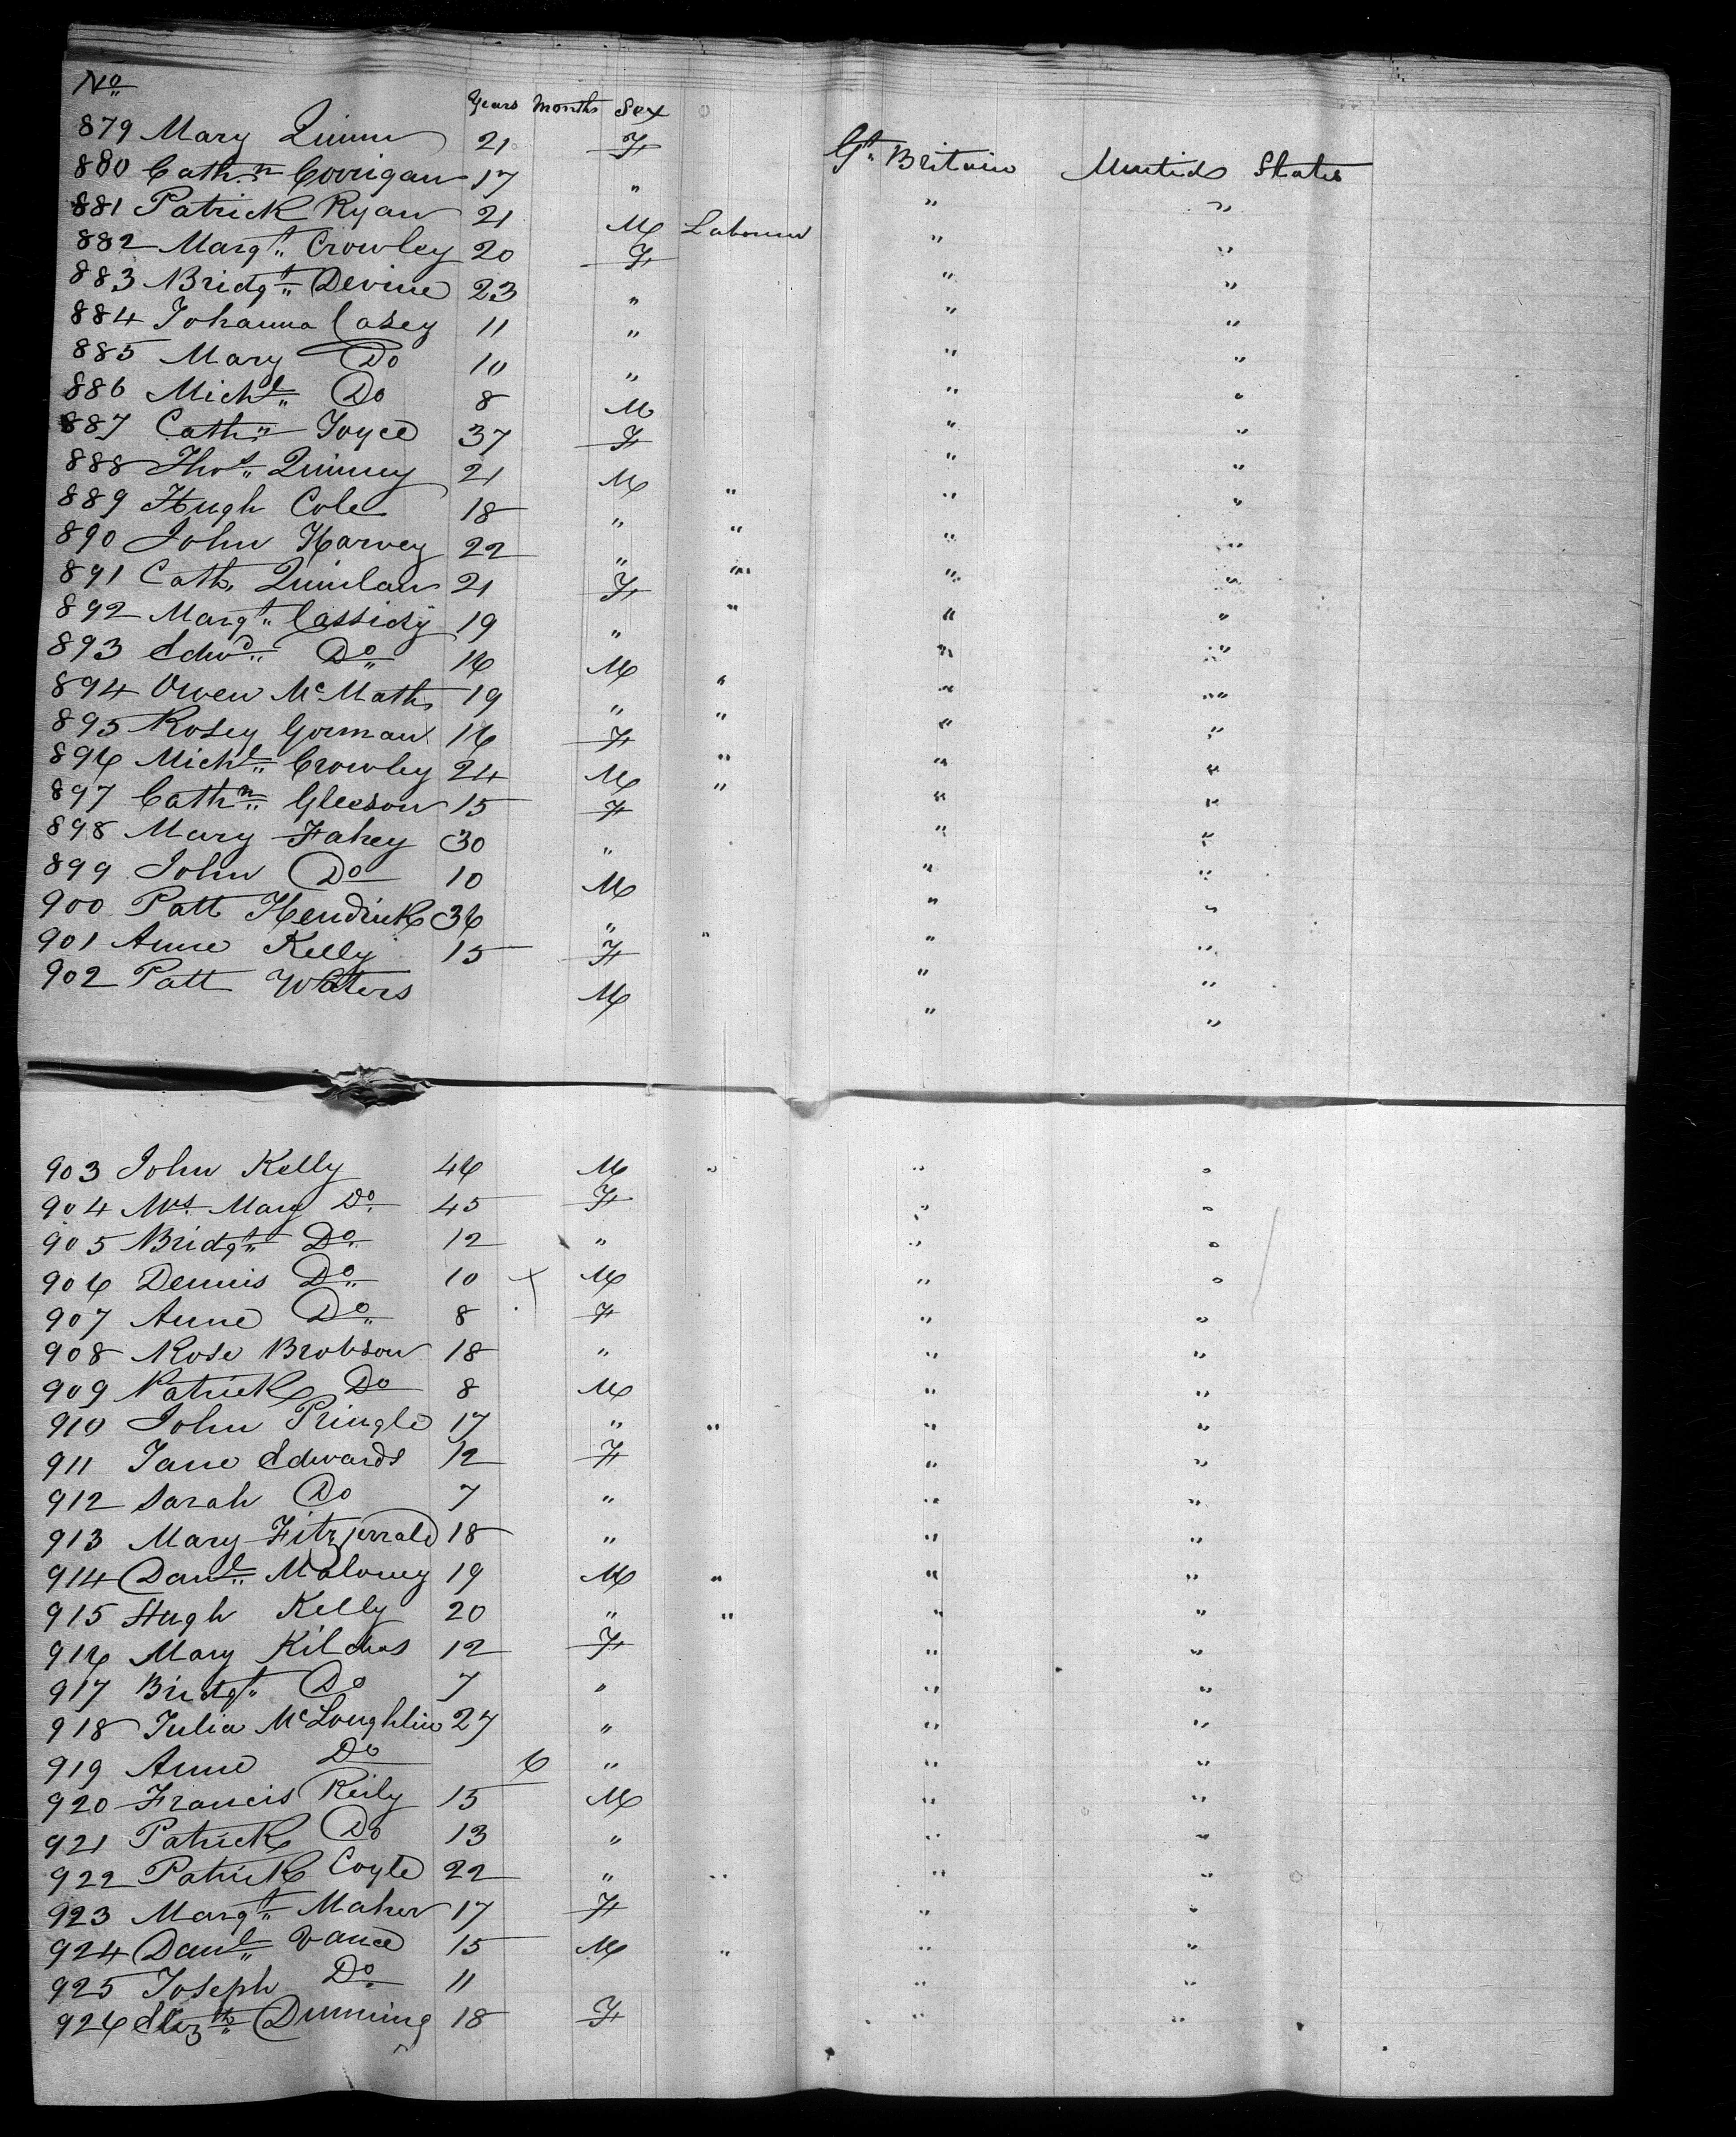 No Years Months Sex
879 Mary Quinn 21 F Gt. Britain United States
880 Cathn. Corrigan 17 " " "
881 Patrick Ryan 21 M Labourer " "
882 Margt. Crowley 20 F " "
883 Bridgt. Devine 23 " " "
884 Johanna Casey 11 " " "
885 Mary Do 10 " " "
886 Michl. Do 8 M " "
887 Cathn. Joyce 37 F " "
888 Thos. Quinney 21 M " " "
889 Hugh Cole 18 " " " "
890 John Harvey 22 " " " "
891 Cath. Quinlan 21 F " " "
892 Margt. Cassidy 19 " " "
893 Edwd. Do 16 M " " "
894 Owen McMath 19 " " " "
895 Rosey Gorman 16 F " " "
896 Michl. Crowley 24 M " " "
897 Cathn. Gleeson 15 F " "
898 Mary Fahey 30 " " "
899 John Do 10 M " "
900 Patt Hendrick 36 " " " "
901 Anne Kelly 15 F " "
902 Patt Waters M " "
903 John Kelly 46 M " " "
904 Mrs. Mary Do. 45 F " "
905 Bridgt. Do. 12 " " "
906 Dennis Do. 10 M " "
907 Anne Do. 8 F " "
908 Rose Brobson 18 " " "
909 Patrick Do 8 M " "
910 John Pringle 17 " " " "
911 Jane Edwards 12 F " "
912 Sarah Do 7 " " "
913 Mary Fitzjerrald 18 " " "
914 Danl. Maloney 19 M " " "
915 Hugh Kelly 20 " " " "
916 Mary 12 F " "
917 Bridgt. Do 7 " " "
918 Julia McLoughlin 27 " " "
919 Anne Do 6 " " "
920 Francis Reily 15 M " "
921 Patrick Do 13 " " "
922 Patrick Coyle 22 " " " "
923 Margt. Maher 17 F " "
924 Danl. Vance 15 M " " "
925 Joseph Do. 11 " "
926 Elizth. Dunning 18 F " "